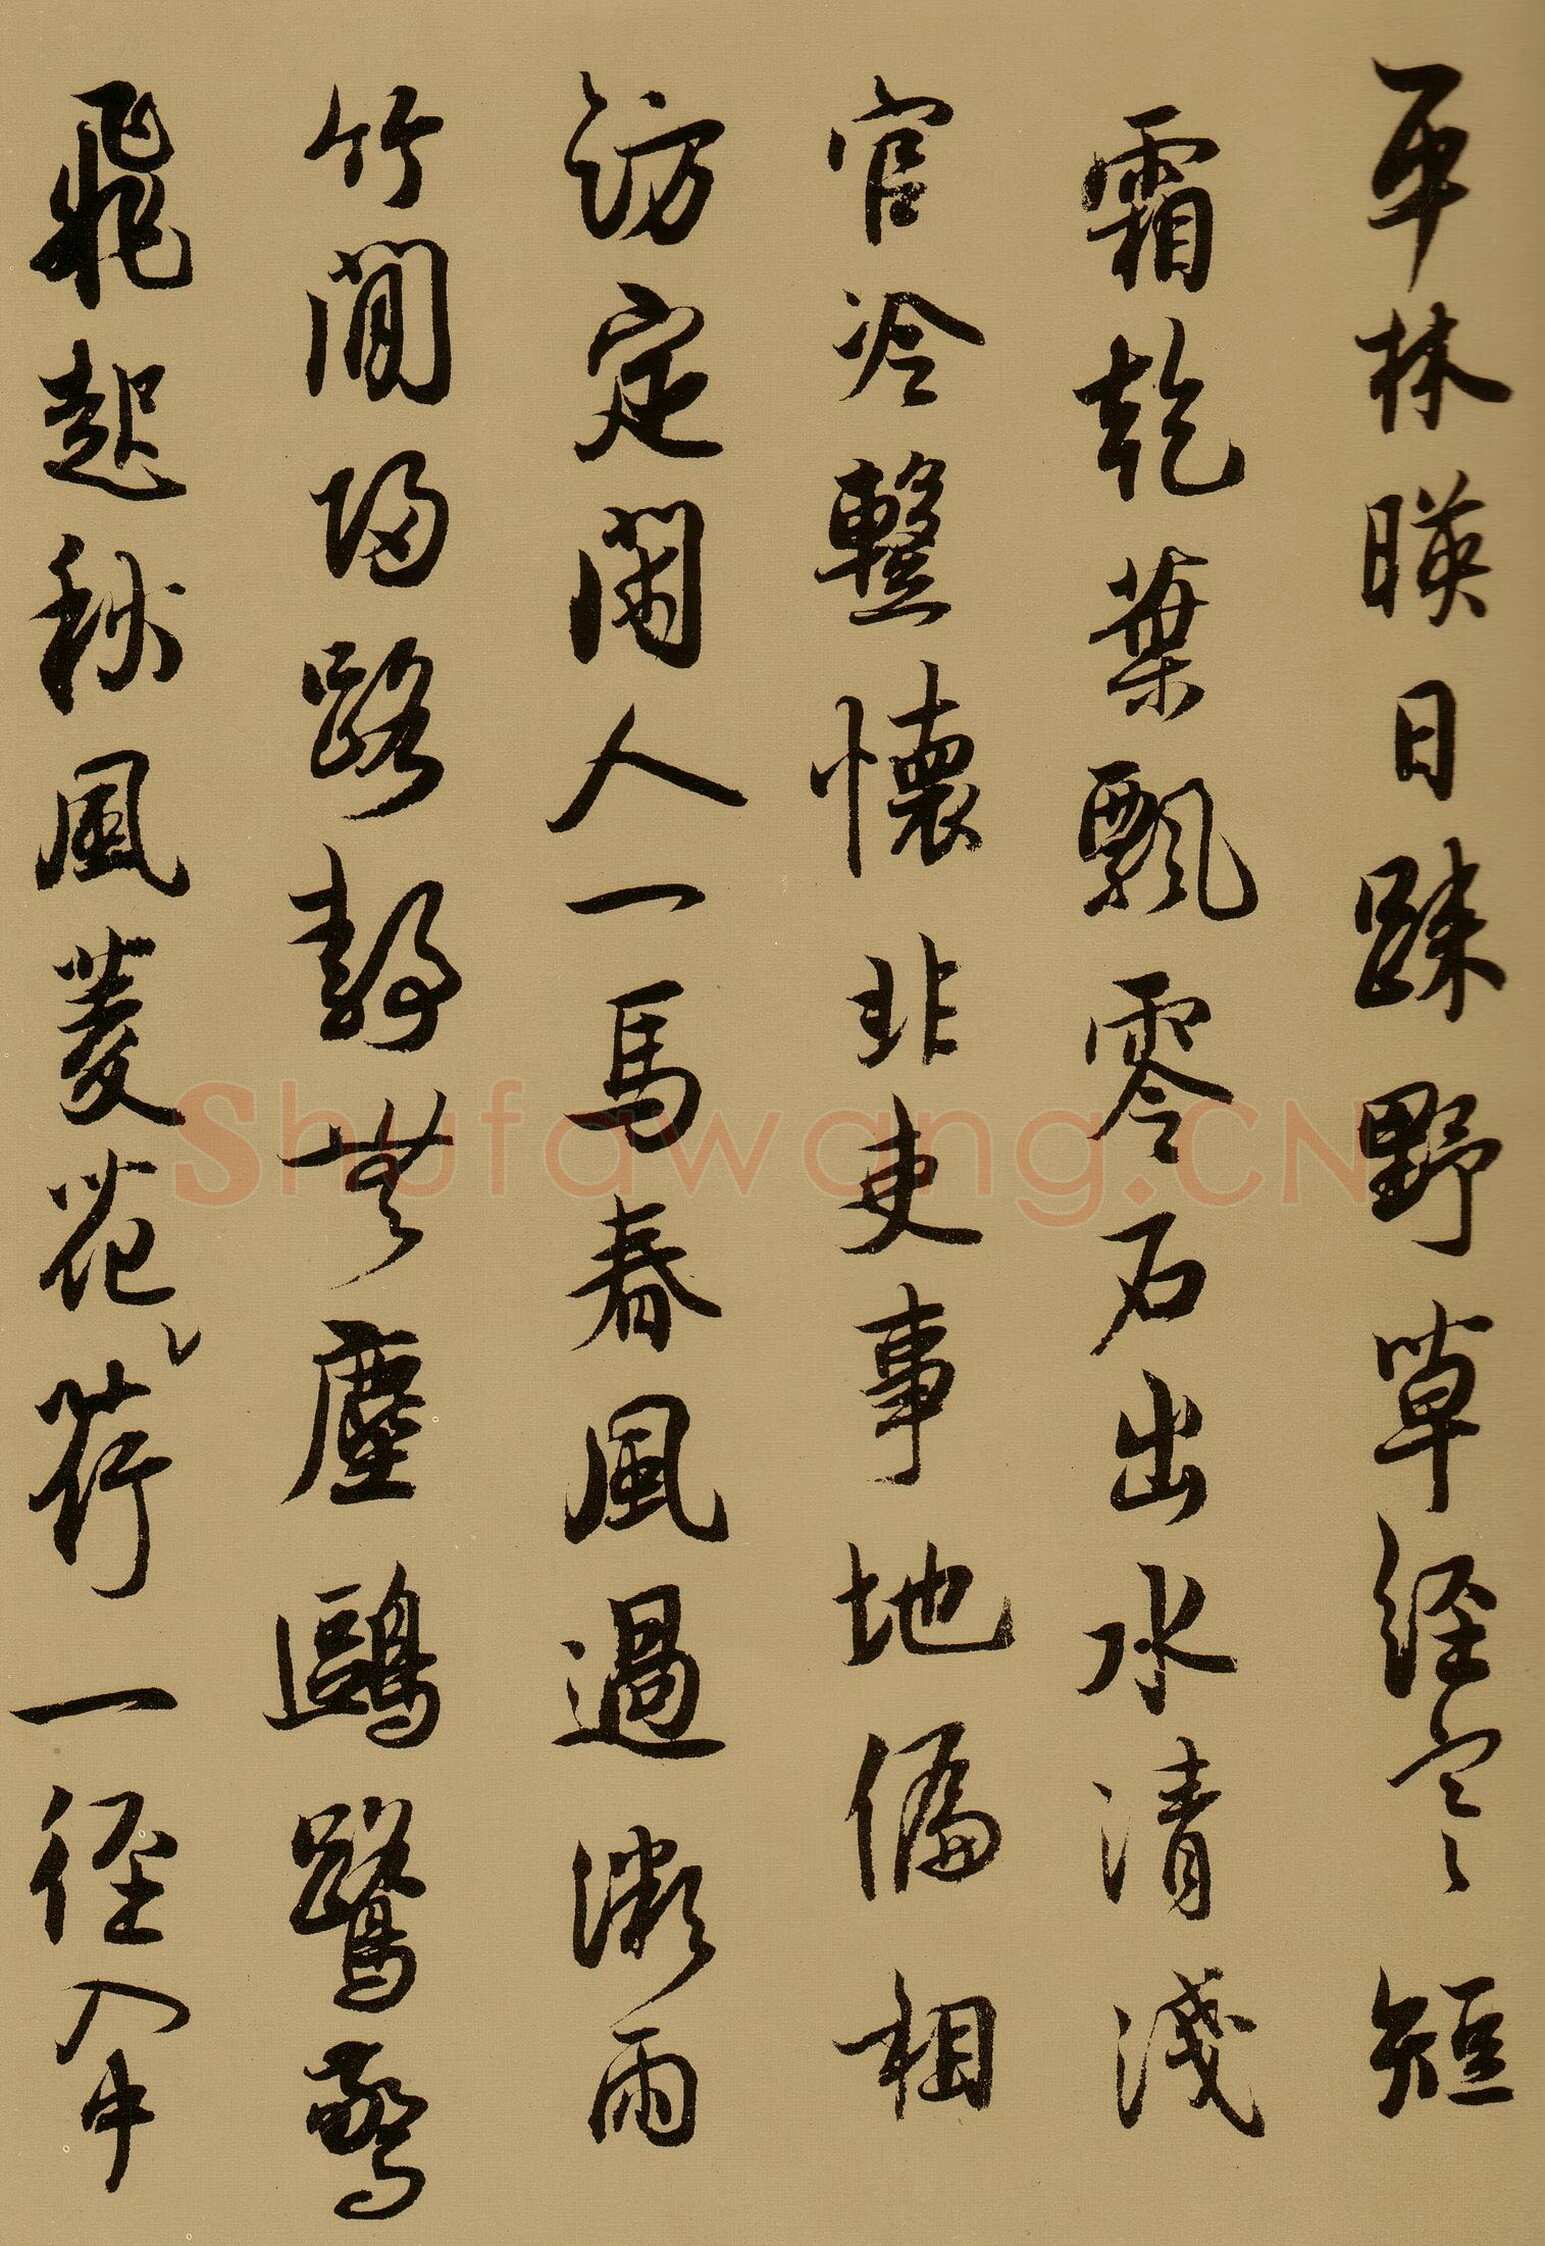 平林暎日踈野草経寒短
霜乾葉飄零石出水清淺
官冷整懷非吏事地偏相
訪定閑人一馬春風過㵎雨
竹間歸路静無塵鷗鷺驚
飛起秋風菱花荷一径入中
Shufawang.CN